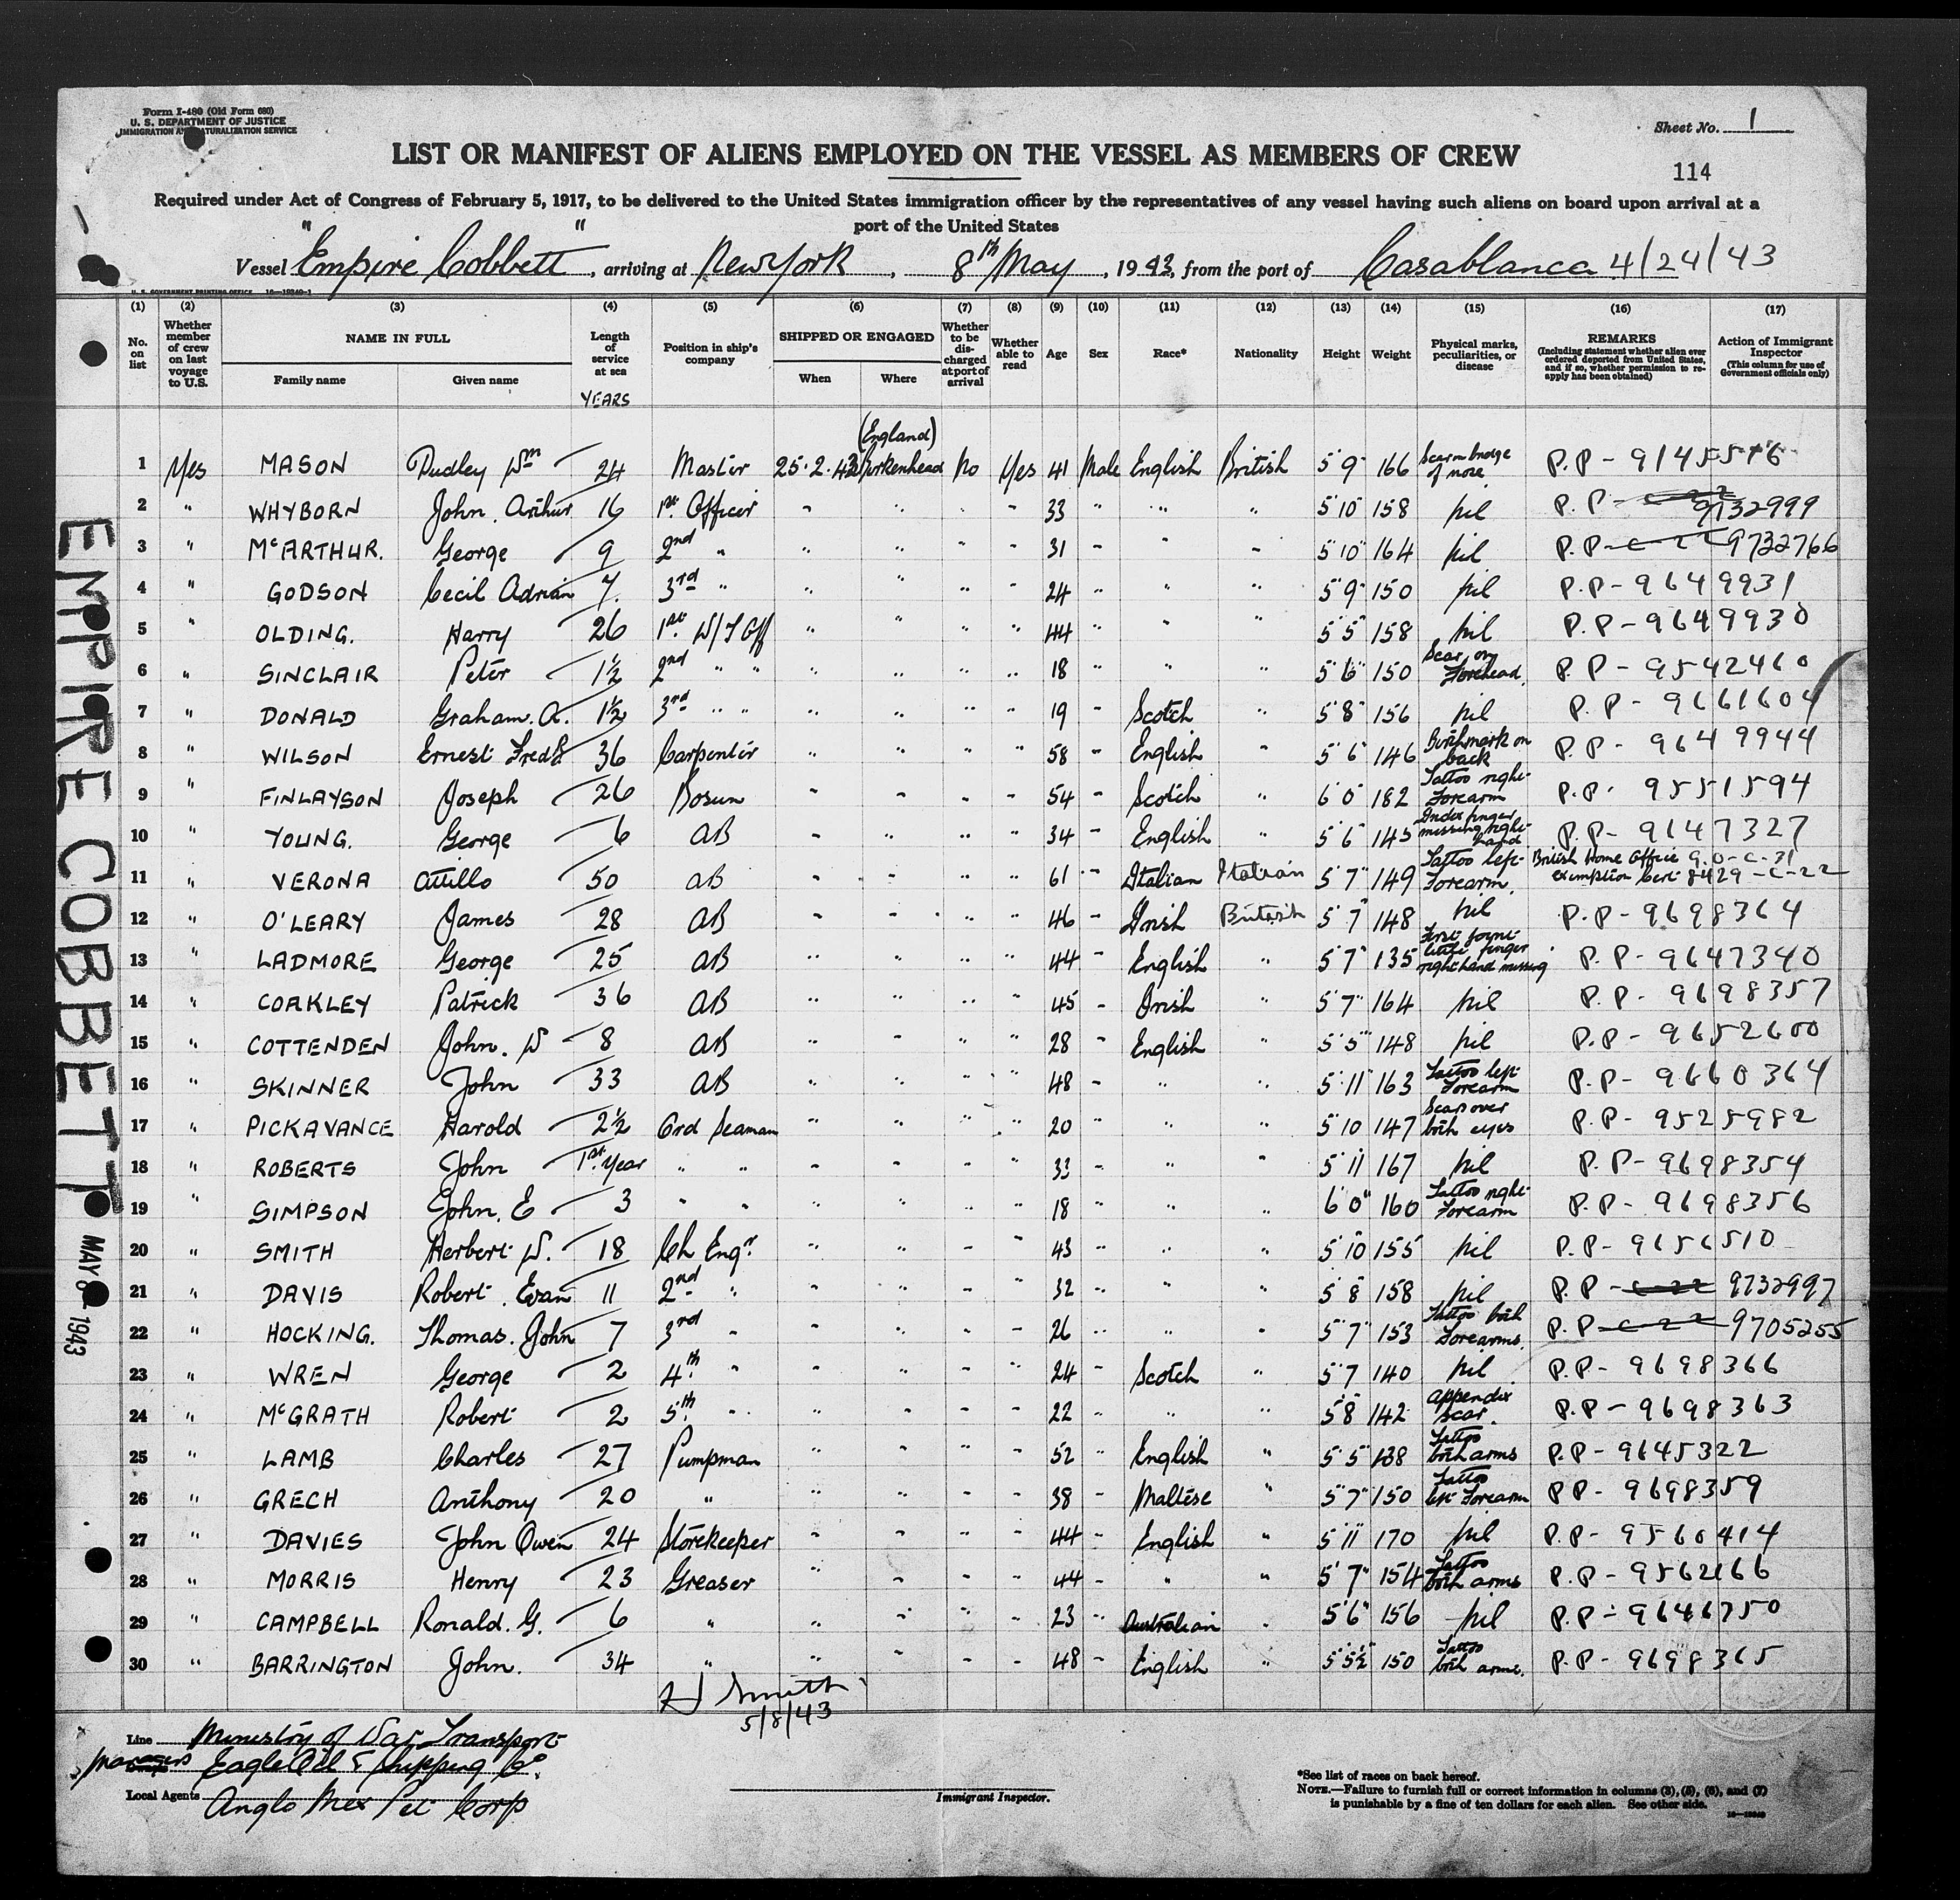 Form I-480 (Old Form 680)
U. S. DEPARTMENT OF JUSTICE
IMMIGRATION AND NATURALIZATION SERVICE
Sheet No. 1
LIST OR MANIFEST OF ALIENS EMPLOYED ON THE VESSEL AS MEMBERS OF CREW
114
Required under Act of Congress of February 5, 1917, to be delivered to the United States immigration officer by the representatives of any vessel having such aliens on board upon arrival at a
port of the United States
Vessel "Empire Cobbett", arriving at New York, 8th May, 1943, from the port of Casablanca 4/24/43
U. S. GOVERNMENT PRINTING OFFICE 16—19240-1
(1) (2) (3) (4) (5) (6) (7) (8) (9) (10) (11) (12) (13) (14) (15) (16) (17)
No. on list
Whether member of crew on last voyage to U.S.
NAME IN FULL
Family name
Given name
Length of service at sea
YEARS
Position in ship's company
SHIPPED OR ENGAGED
When
Where
Whether to be discharged at port of arrival
Whether able to read
Age
Sex
Race*
Nationality
Height
Weight
Physical marks, peculiarities, or disease
REMARKS
(Including statement whether alien ever ordered deported from United States, and if so, whether permission to reapply has been obtained)
Action of Immigrant Inspector
(This column for use of Government officials only)
(England)
1 Yes MASON Dudley Wm 24 Master 25.2.43 Birkenhead No Yes 41 Male English British 5'9" 166 Scar on bridge of nose P.P - 9145576
2 " WHYBORN John. Arthur 16 1st. Officer " " " " 33 " " " 5'10" 158 Nil P.P - 9732999
3 " McARTHUR. George 9 2nd " " " " " 31 " " " 5'10" 164 Nil P.P - 9732766
4 " GODSON Cecil Adrian 7. 3rd " " " " " 24 " " " 5'9" 150 Nil P.P - 9649931
5 " OLDING. Harry 26 1st. W/T Off " " " " 44 " " " 5'5" 158 Nil P.P - 9649930
6 " SINCLAIR Peter 1½ 2nd " " " " " " 18 " " " 5'6" 150 Scar on Forehead. P.P - 9542460
7 " DONALD Graham. A. 1½ 3rd " " " " " " 19 " Scotch " 5'8" 156 Nil P.P - 9661604
8 " WILSON Ernest Fredk 36 Carpenter " " " " 58 " English " 5'6" 146 Birthmark on back P.P - 9649944
9 " FINLAYSON Joseph 26 Bosun " " " " 54 " Scotch " 6'0" 182 Tattoo right Forearm P.P. 9551594
10 " YOUNG. George 6 AB " " " " 34 " English " 5'6" 145 Index finger missing right hand P.P - 9647327
11 " VERONA Attillo 50 AB " " " " 61 " Italian Italian 5'7" 149 Tattoo left Forearm. British Home Office G.O-C-31 exemption Cert 8429-C-22
12 " O'LEARY James 28 AB " " " " 46 " Irish British 5'7" 148 Nil P.P - 9698364
13 " LADMORE George 25 AB " " " " 44 " English " 5'7" 135 First joint little finger right hand missing P.P - 9647340
14 " COAKLEY Patrick 36 AB " " " " 45 " Irish " 5'7" 164 Nil P.P - 9698357
15 " COTTENDEN John. W 8 AB " " " " 28 " English " 5'5" 148 Nil P.P - 9652600
16 " SKINNER John 33 AB " " " " 48 " " " 5'11" 163 Tattoo left Forearm P.P - 9660364
17 " PICKAVANCE Harold 2½ Ord Seaman " " " " 20 " " " 5'10 147 Scar over both eyes P.P - 9525982
18 " ROBERTS John 1st. Year " " " " " " 33 " " " 5'11 167 Nil P.P - 9698354
19 " SIMPSON John. E 3 " " " " " " 18 " " " 6'0" 160 Tattoo right Forearm P.P - 9698356
20 " SMITH Herbert W. 18 Ch Engr " " " " 43 " " " 5'10 155 Nil P.P - 9656510
21 " DAVIS Robert. Evan 11 2nd " " " " " 32 " " " 5'8" 158 Nil P.P - 9732997
22 " HOCKING. Thomas. John 7 3rd " " " " " 26 " " " 5'7" 153 Tattoo both Forearms. P.P - 9705255
23 " WREN George 2 4th " " " " " 24 " Scotch " 5'7 140 Nil P.P - 9698366
24 " McGRATH Robert 2 5th. " " " " " 22 " " " 5'8 142 Appendix scar. P.P - 9698363
25 " LAMB Charles 27 Pumpman " " " " 52 " English " 5'5" 138 Tattoo both arms P.P - 9645322
26 " GRECH Anthony 20 " " " " " 38 " Maltese " 5'7" 150 Tattoo left Forearm P P - 9698359
27 " DAVIES John Owen 24 Storekeeper " " " " 44 " English " 5'11 170 Nil P.P - 9560414
28 " MORRIS Henry 23 Greaser " " " " 44 " " " 5'7" 154 Tattoo both arms P.P - 9562166
29 " CAMPBELL Ronald. G. 6 " " " " " 23 " Australian " 5'6" 156 Nil P.P - 9646750
30 " BARRINGTON John. 34 " " " " " 48 " English " 5'5½ 150 Tattoo both arms. P.P - 9698365
H Smith
5/8/43
Line Ministry of War Transport
Managers Eagle Oil & Shipping Co.
Local Agents Anglo Mex Pet Corp
Immigrant Inspector.
*See list of races on back hereof.
NOTE.—Failure to furnish full or correct information in columns (3), (5), (6), and (7)
is punishable by a fine of ten dollars for each alien. See other side.
EMPIRE COBBETT
MAY 8 1943